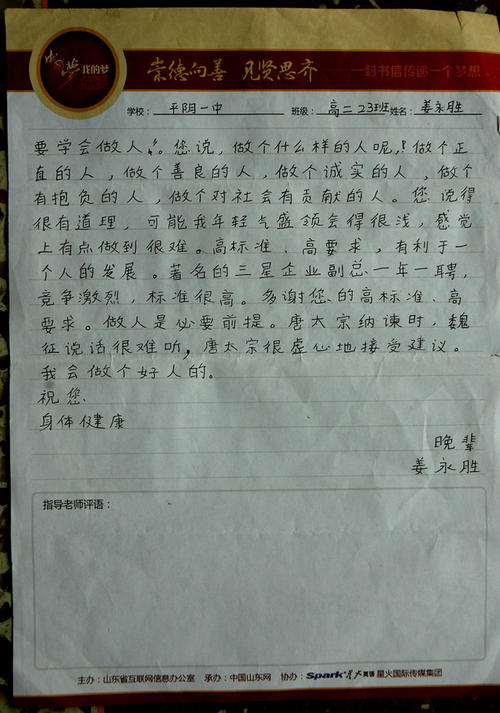 中国梦 我的梦
崇德向善 见贤思齐
一封书信传递一个梦想
学校：平阴一中 班级：高二23班 姓名：姜永胜
要学会做人。您说，做个什么样的人呢，！做个正
直的人，做个善良的人，做个诚实的人，做个
有抱负的人，做个对社会有贡献的人。您说得
很有道理，可能我年轻气盛领会得很浅，感觉
上有点做到很难。高标准、高要求，有利于一
个人的发展。著名的三星企业副总一年一聘，
竞争激烈，标准很高。多谢您的高标准、高
要求。做人是必要前提。唐太宗纳谏时，魏
征说话很难听，唐太宗很虚心地接受建议。
我会做个好人的。
祝您
身体健康
晚辈
姜永胜
指导老师评语：
主办：山东省互联网信息办公室 承办：中国山东网 协办：Spark星火英语 星火国际传媒集团